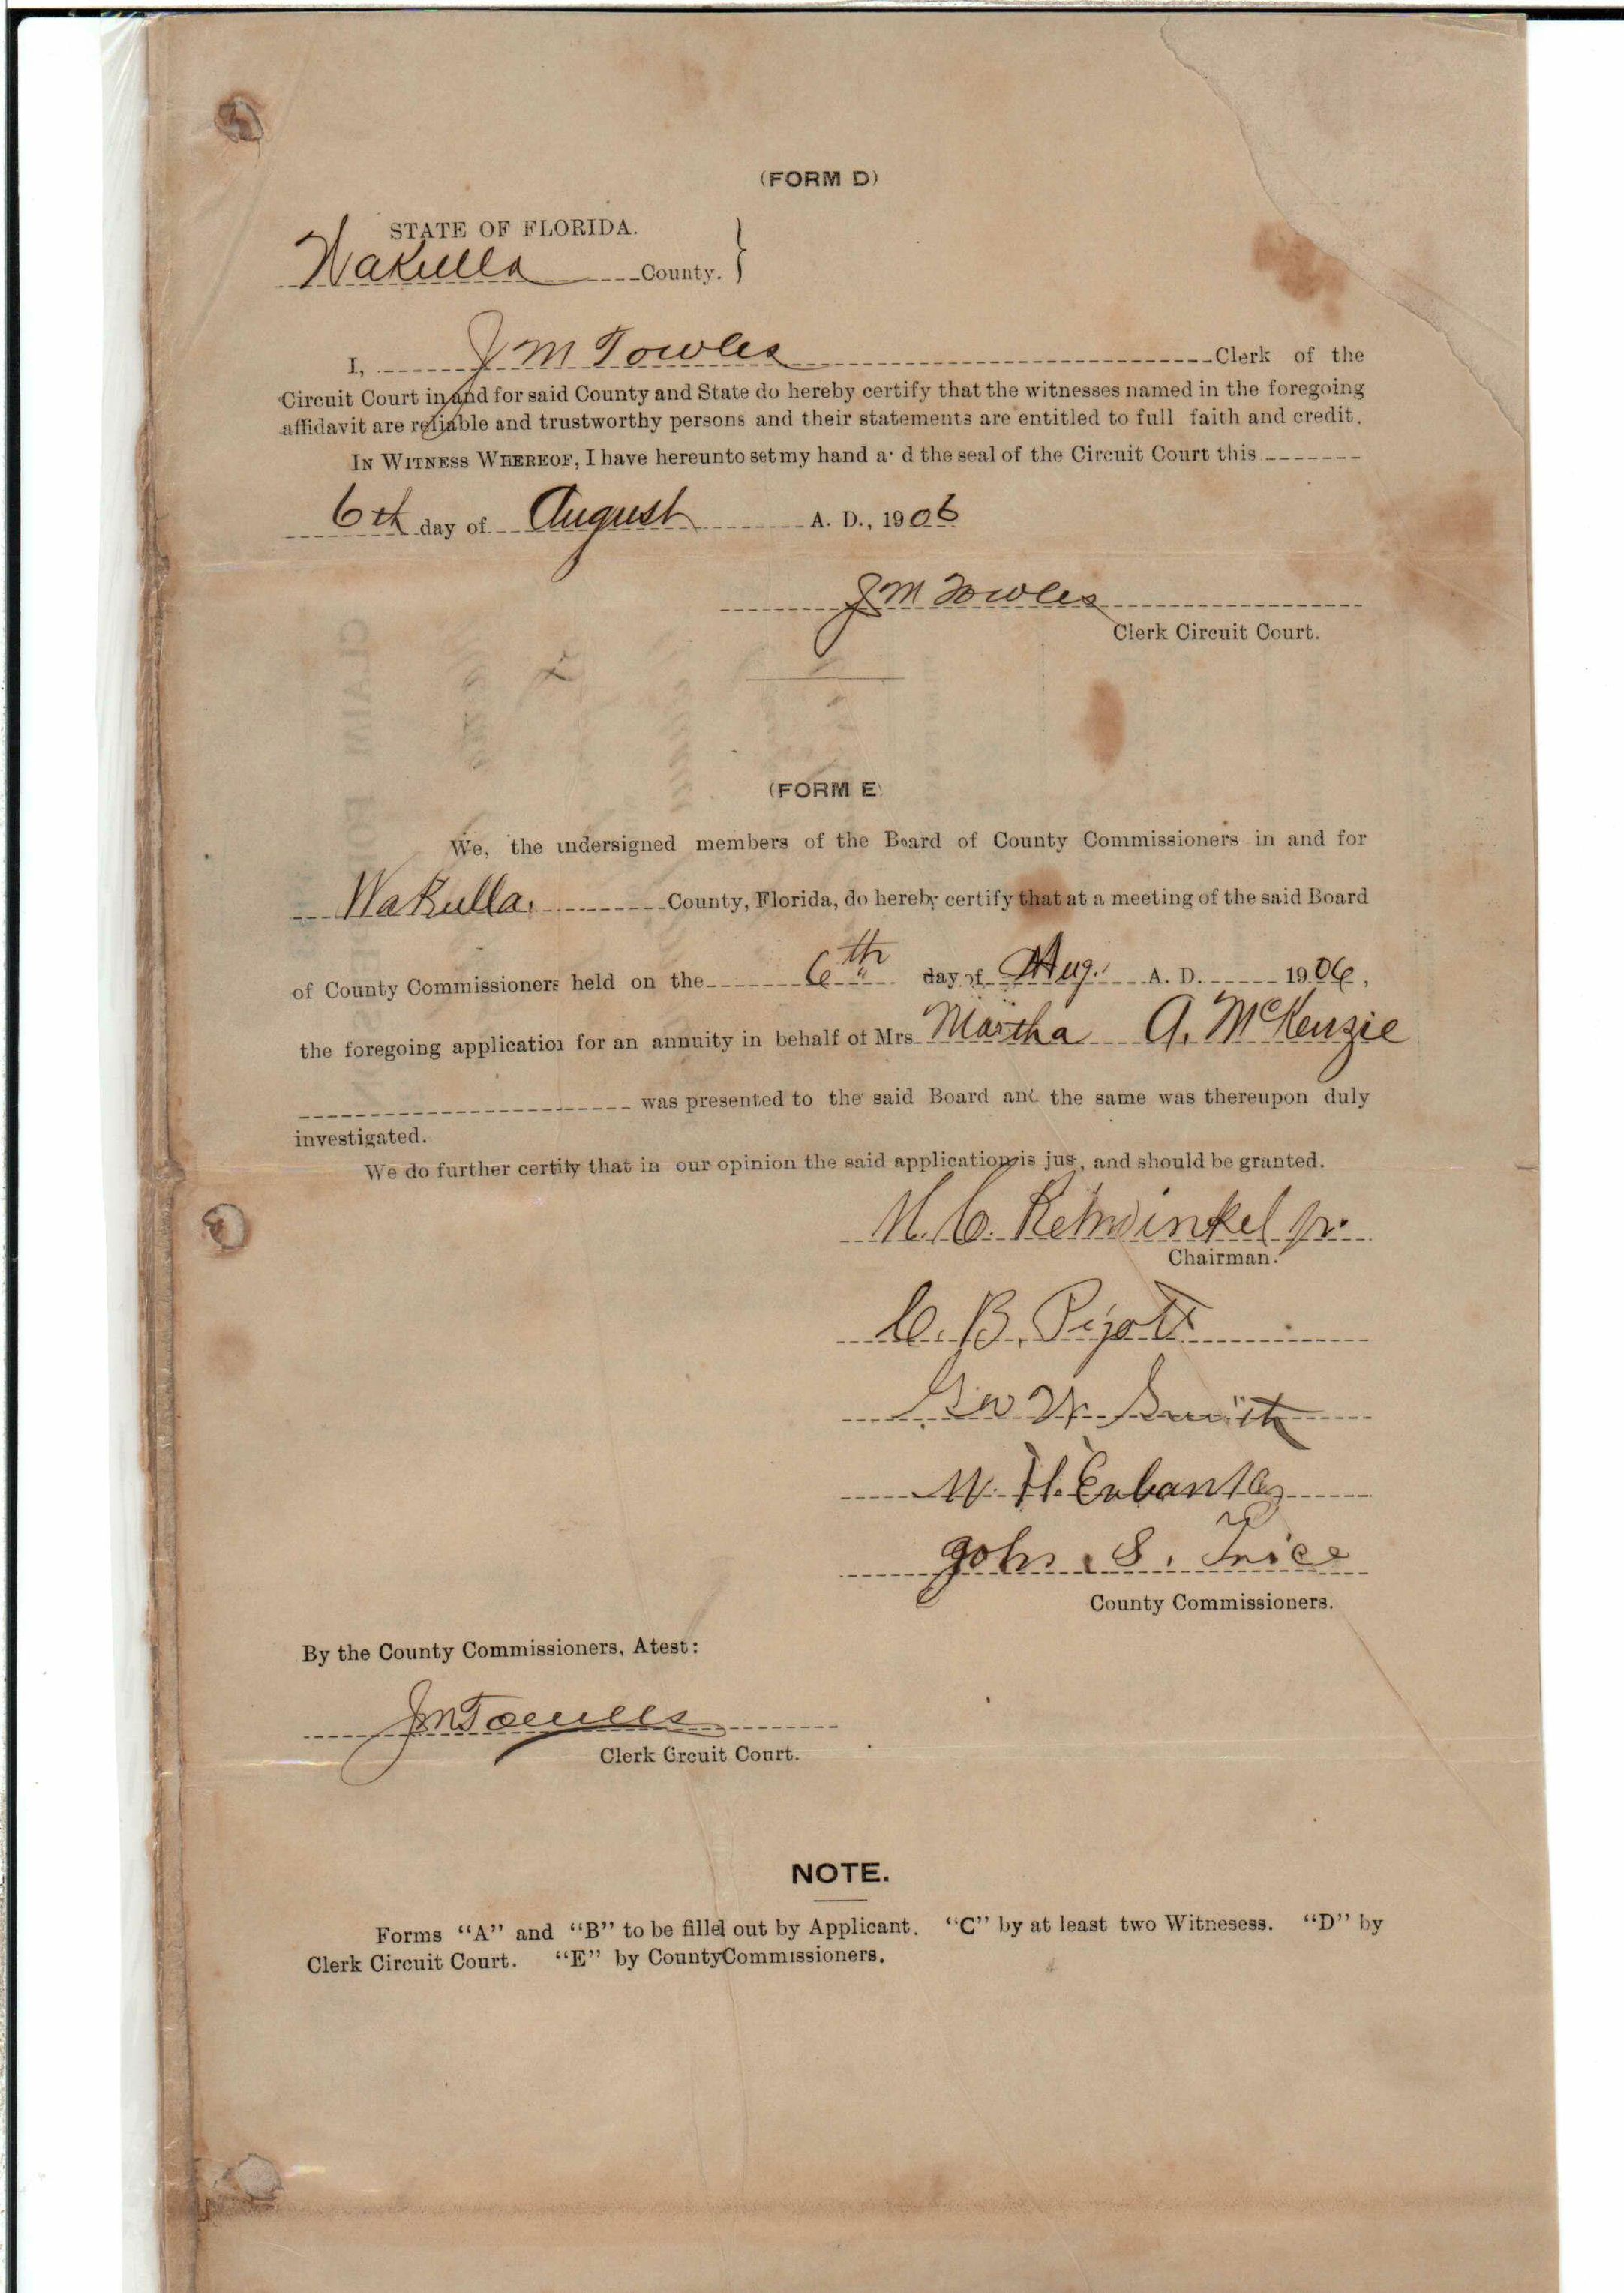 (FORM D)
STATE OF FLORIDA.
Wakulla County.
I, J M Towles Clerk of the
Circuit Court in and for said County and State do hereby certify that the witnesses named in the foregoing
affidavit are reliable and trustworthy persons and their statements are entitled to full faith and credit.
IN WITNESS WHEREOF, I have hereunto set my hand a d the seal of the Circuit Court this
6th day of August A. D., 1906
J M Towles
Clerk Circuit Court.
(FORM E)
We, the undersigned members of the Board of County Commissioners in and for
Wakulla. County, Florida, do hereby certify that at a meeting of the said Board
of County Commissioners held on the 6th day of Aug. A. D. 1906,
the foregoing application for an annuity in behalf of Mrs Martha A. McKenzie
was presented to the said Board and the same was thereupon duly
investigated.
We do further certify that in our opinion the said application is jus , and should be granted.
C. Rehwinkel Jr.
Chairman.
C. B. Pigott
Geo W Smith
W. H. Eubanks
John S. Trice
County Commissioners.
By the County Commissioners, Atest:
J M Towles
Clerk Crcuit Court.
NOTE.
Forms "A" and "B" to be filled out by Applicant. "C" by at least two Witnesess. "D" by
Clerk Circuit Court. "E" by CountyCommissioners.